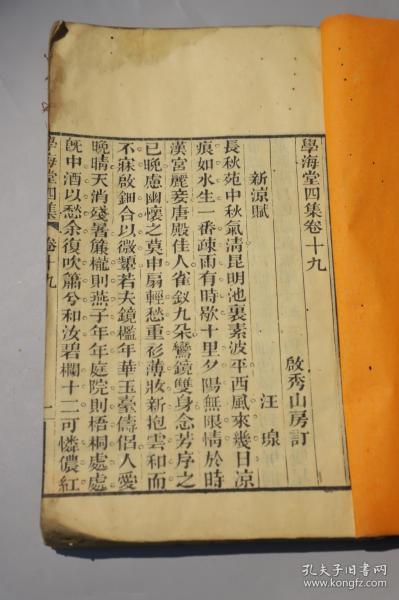 學海堂四集卷十九
啟秀山房訂
新涼賦
汪瑔
長秋苑中秋氣清昆明池裏素波平西風來幾日涼
痕如水生一番疎雨有時歇十里夕陽無限情於時
漢宮麗妾唐殿佳人雀釵九朵鸞鏡雙身念芳序之
已晚慮幽懷之莫申扇輕愁重衫薄妝新抱雲和而
不寐啟鈿合以微顰若夫鏡檻年華玉臺儔侶人愛
晚晴天消殘暑簾櫳則燕子年年庭院則梧桐處處
旣中酒以愁余復吹簫兮和汝碧欄十二可憐儂紅
學海堂四集
卷十九
一
孔夫子旧书网
www.kongfz.com